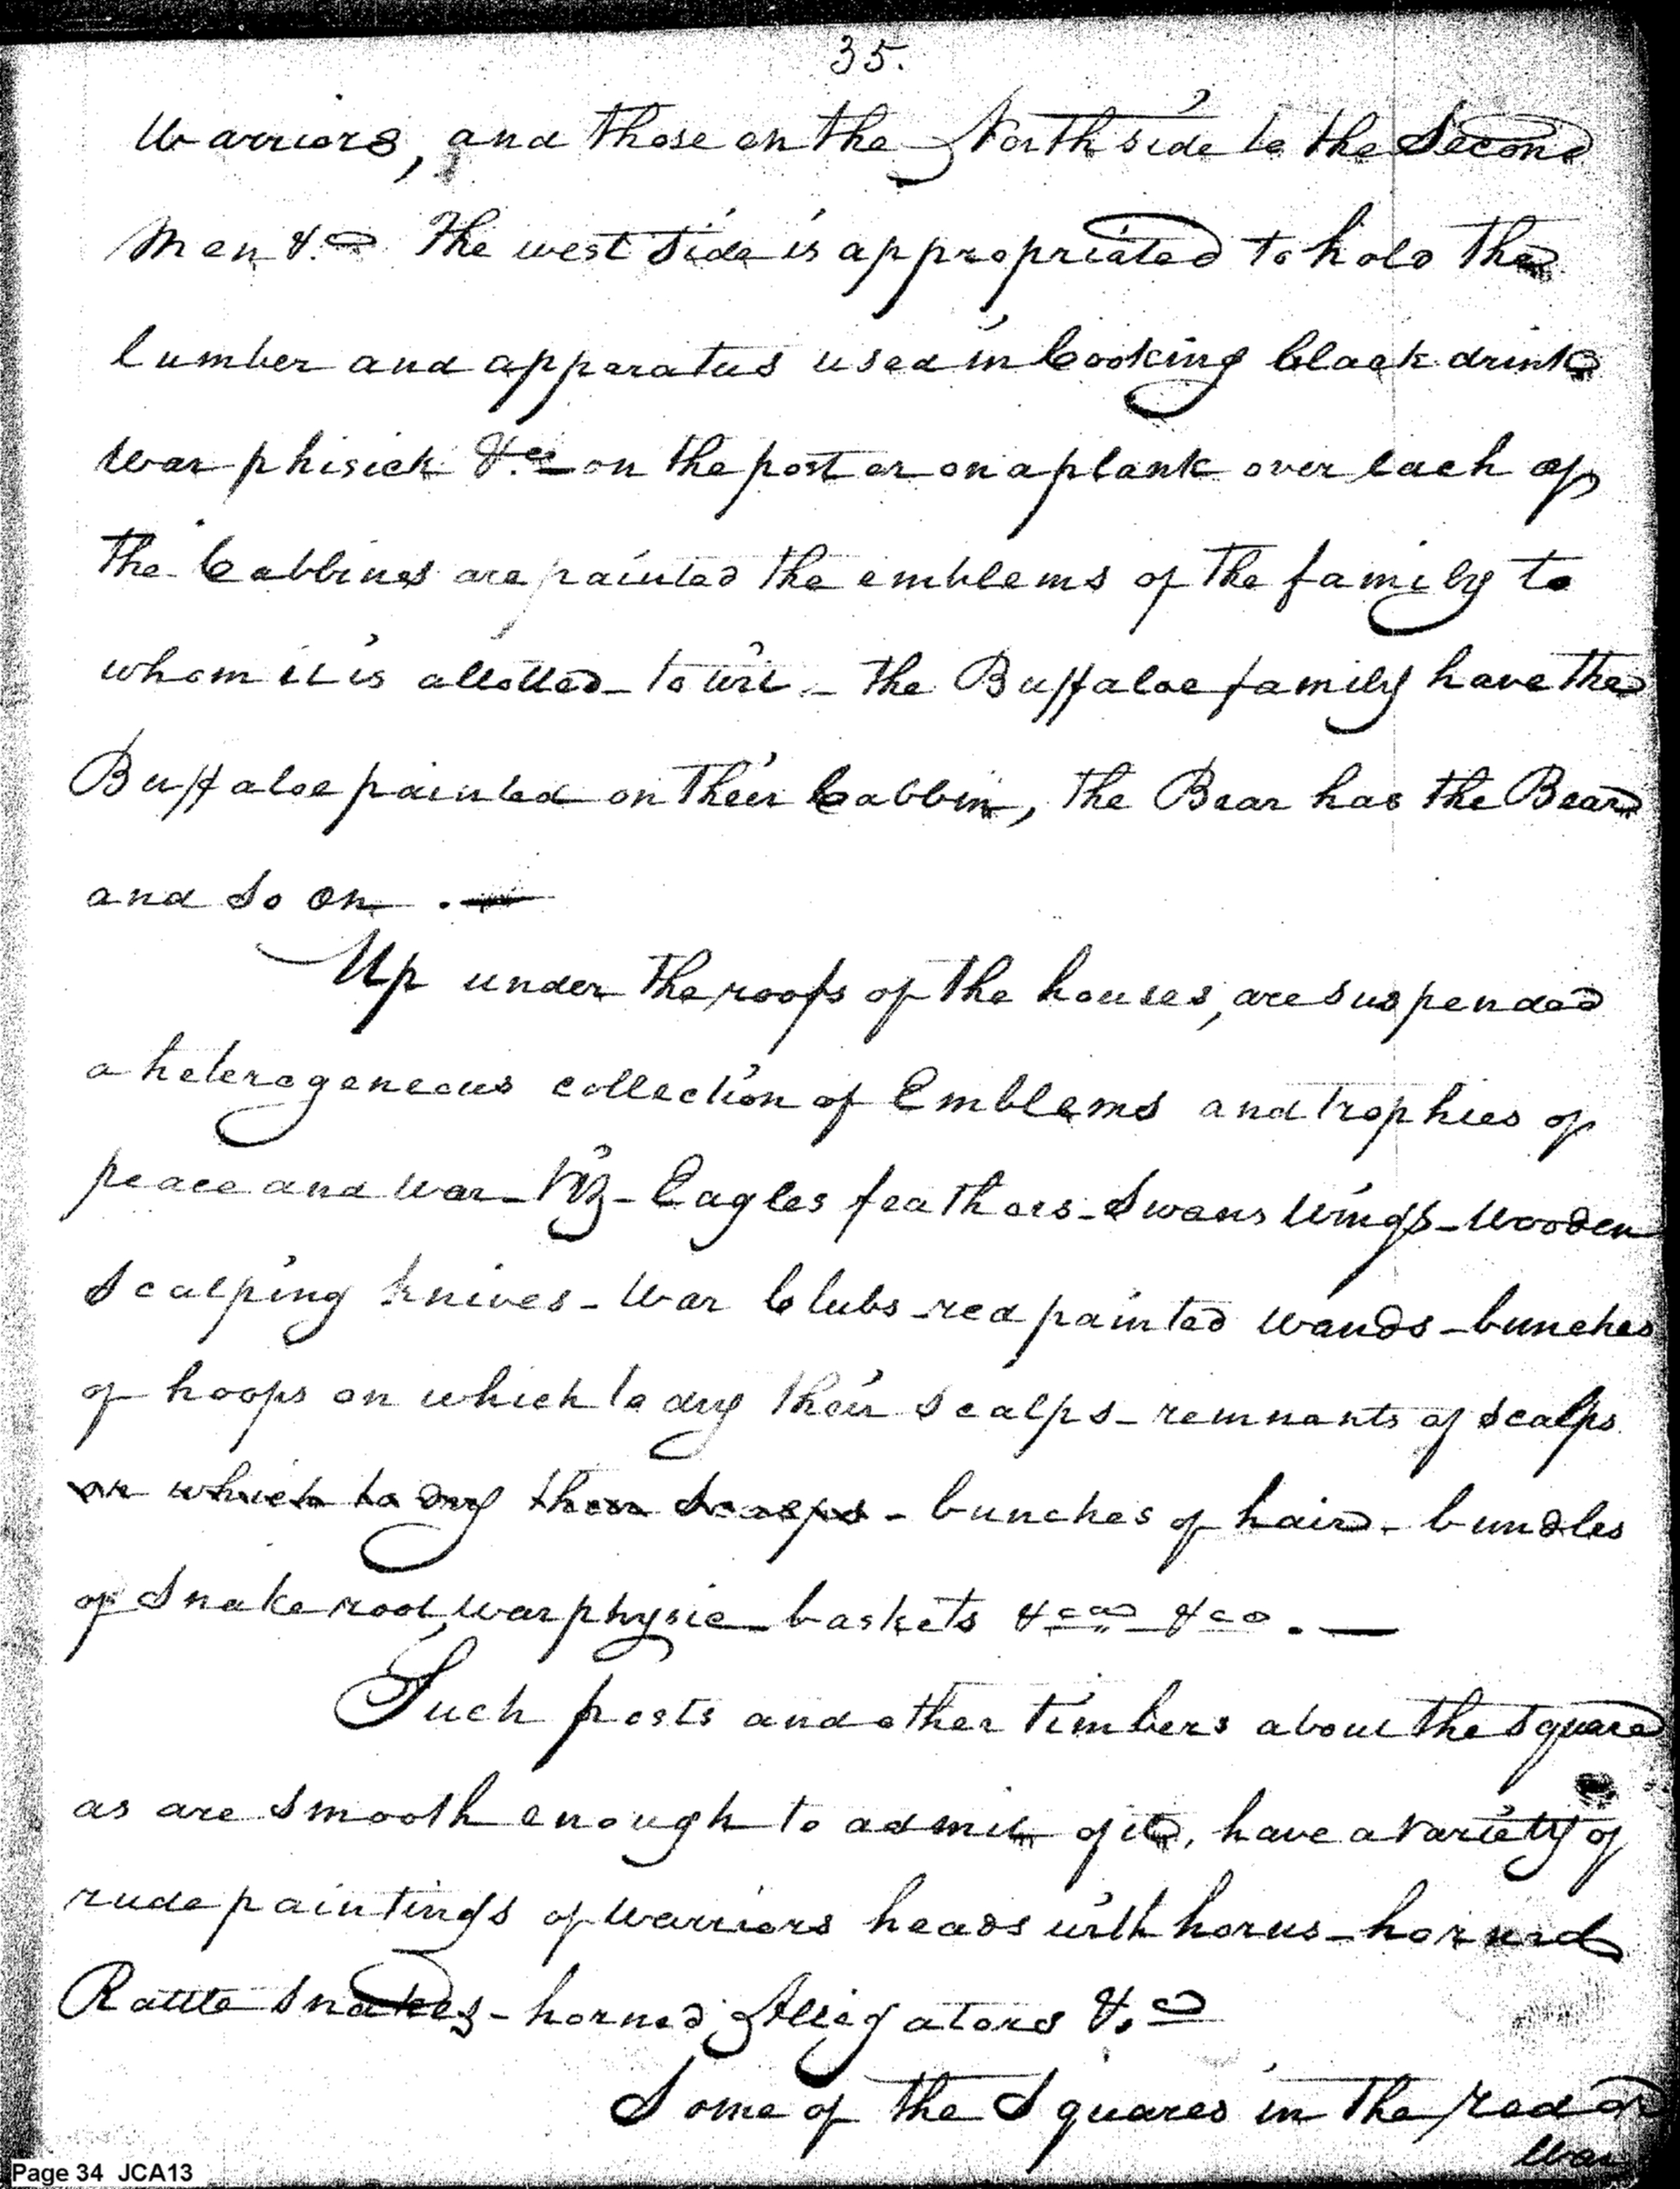 35.
Warriors, and those on the North side to the Second
Men &.c The west side is appropriated to hold the
lumber and apparatus used in Cooking black drink
War phisick &.ca on the post or on a plank over each of
the Cabbines are painted the emblems of the family to
whom it is allotted - to wit - the Buffaloe family have the
Buffaloe painted on their Cabbin, the Bear has the Bear
and so on .—
Up under the roofs of the houses, are suspended
a heterogeneous collection of Emblems and trophies of
peace and War - Viz - Eagles feathers - Swans Wings - Wooden
Scalping knives - War Clubs - red painted wands - bunches
of hoops on which to dry their Scalps - remnants of scalps
on which to dry their Scalps - bunches of hair - bundles
of Snake root War physic - baskets &ca &ca .—
Such posts and other timbers about the Square
as are smooth enough to admit of it, have a variety of
rude paintings of Warriors heads with horns - horned
Rattle Snakes - horned Alligators &.c
Some of the Squares in the red or
War
Page 34 JCA13